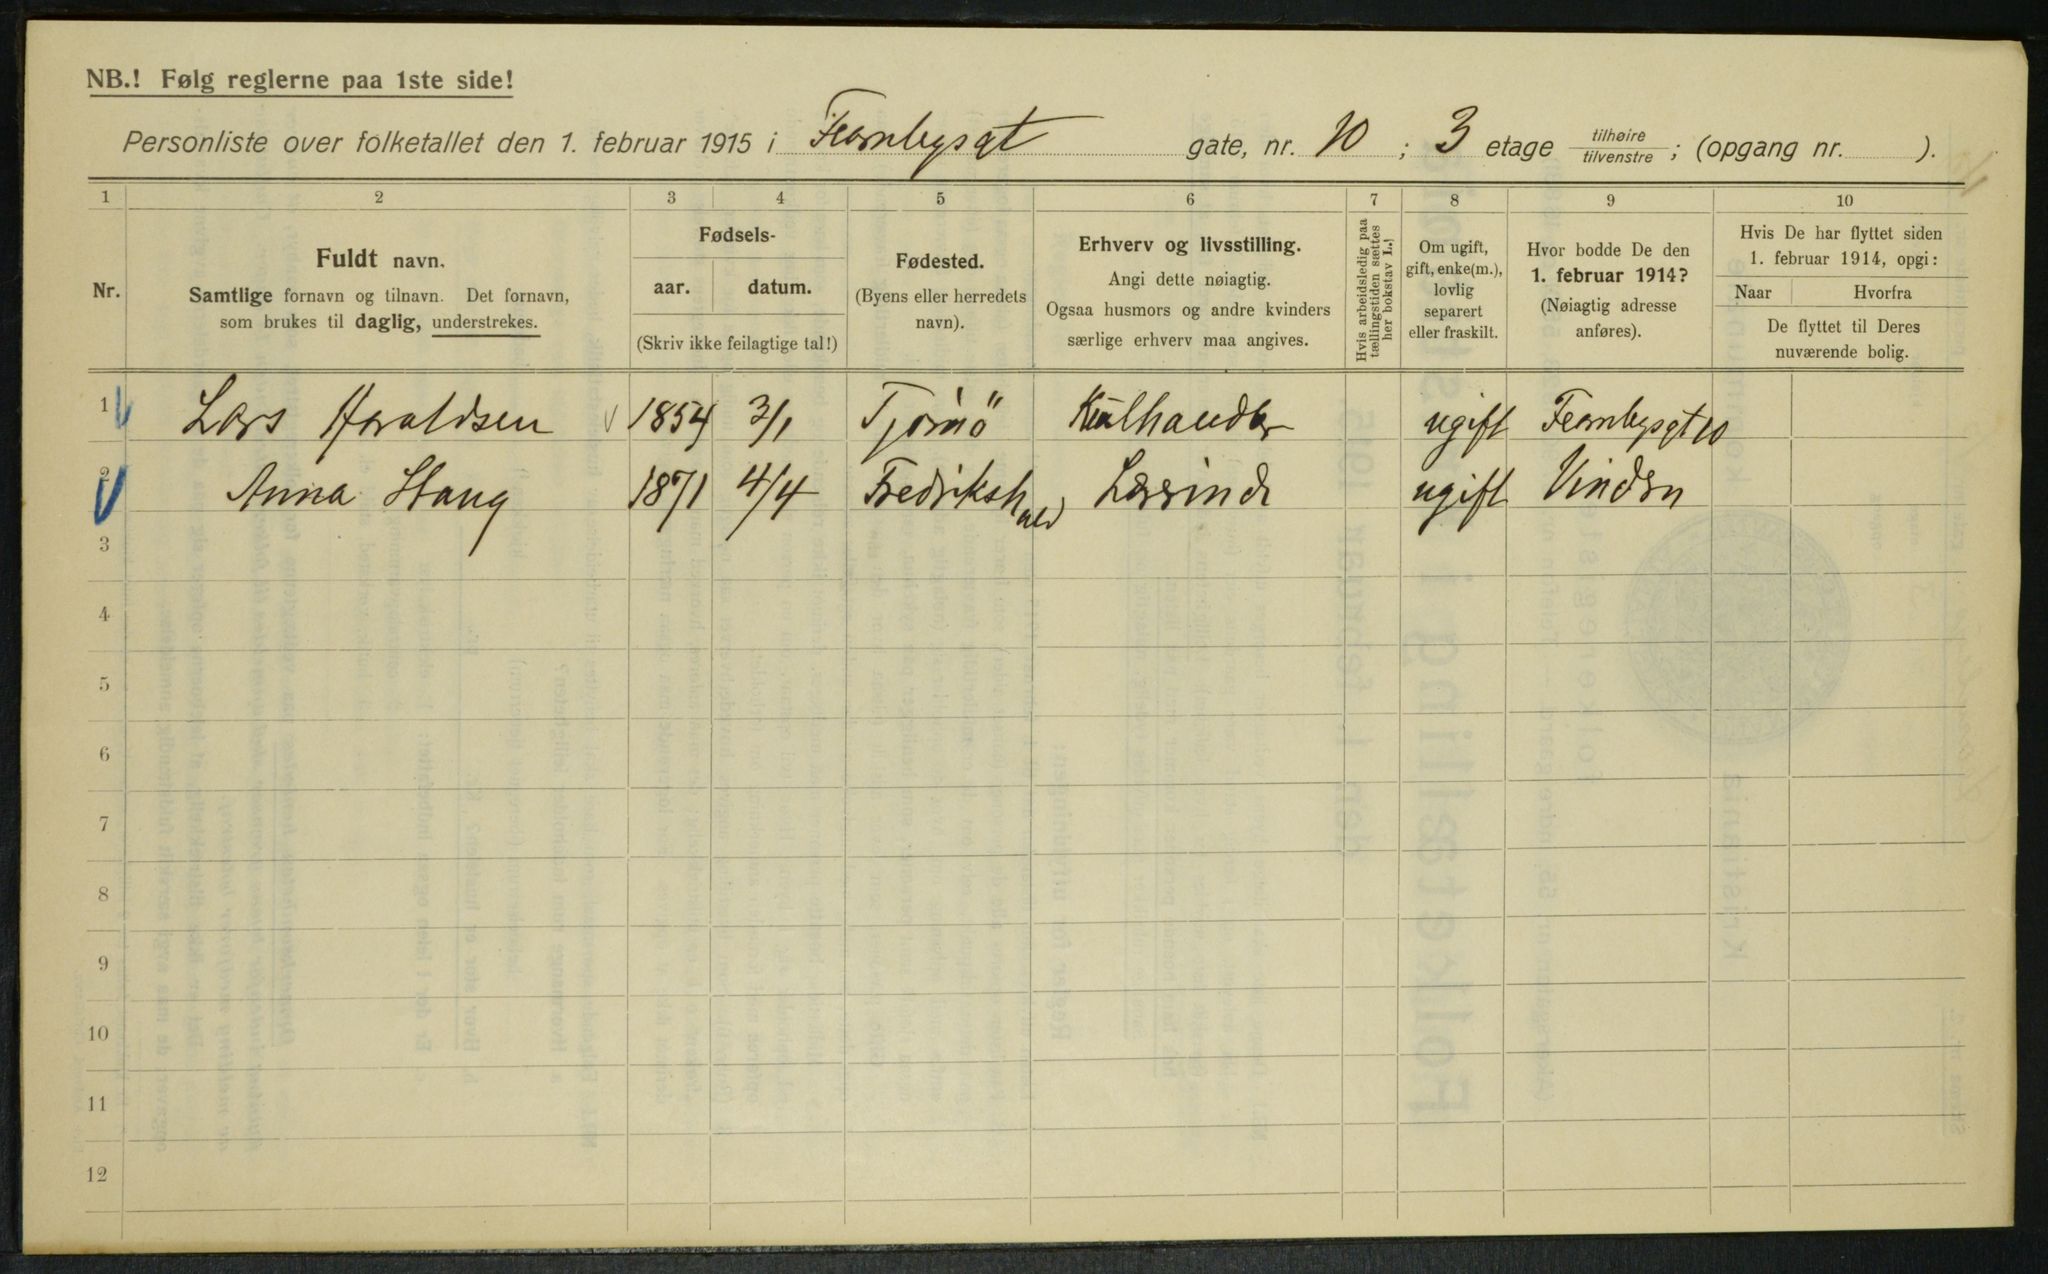 NB.! Følg reglerne paa 1ste side!
Personliste over folketallet den 1. februar 1915 i Fearnleysgt gate, nr. 10 ; 3 etage tilhøire/tilvenstre ; (opgang nr. ).
1 2 3 4 5 6 7 8 9 10
Nr.
Fuldt navn.
Samtlige fornavn og tilnavn. Det fornavn,
som brukes til daglig, understrekes.
Fødsels-
aar. datum.
(Skriv ikke feilagtige tal!)
Fødested.
(Byens eller herredets
navn).
Erhverv og livsstilling.
Angi dette nøiagtig.
Ogsaa husmors og andre kvinders
særlige erhverv maa angives.
Hvis arbeidsledig paa
tællingstiden sættes
her bokstav L.!
Om ugift,
gift, enke(m.),
lovlig
separert
eller fraskilt.
Hvor bodde De den
1. februar 1914?
(Nøiagtig adresse
anføres).
Hvis De har flyttet siden
1. februar 1914, opgi:
Naar Hvorfra
De flyttet til Deres
nuværende bolig.
1 Lars Haraldsen 1854 3/1 Tjømø Kulhandler ugift Fearnleysgt 10
2 Anna Haug 1871 4/4 Fredrikshald Lærerinde ugift Vindern
3
4
5
6
7
8
9
10
11
12